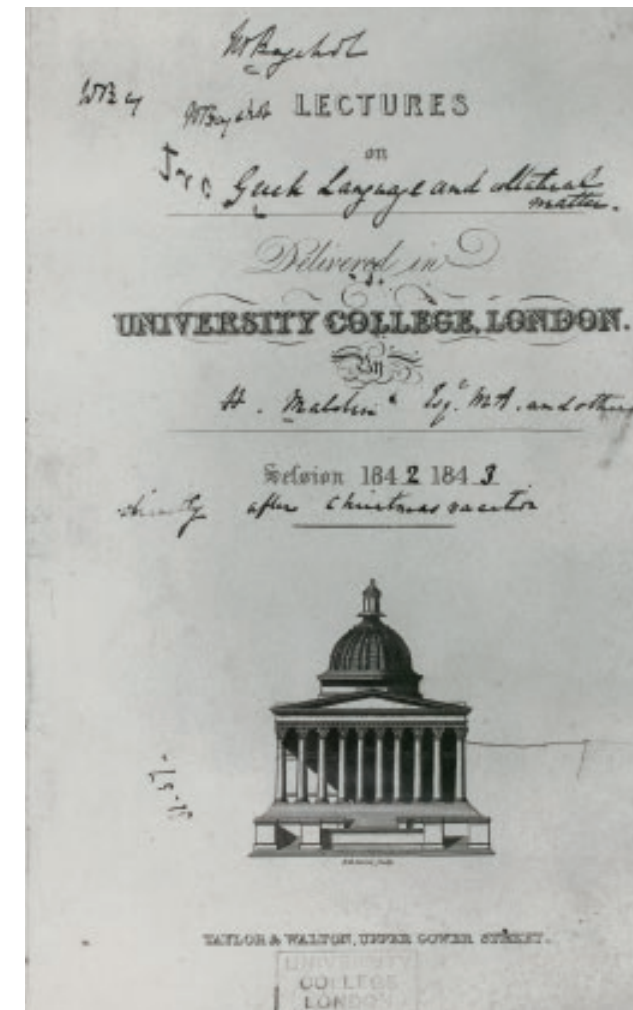 W Bagehot
WB
WBagehot LECTURES
on
Greek Language and collateral
matter.
Delivered in
UNIVERSITY COLLEGE, LONDON.
By
H. Malden Esqr. M.A. and others
Session 1842 1843
after Christmas vacation
TAYLOR & WALTON, UPPER GOWER STREET.
UNIVERSITY
COLLEGE
LONDON